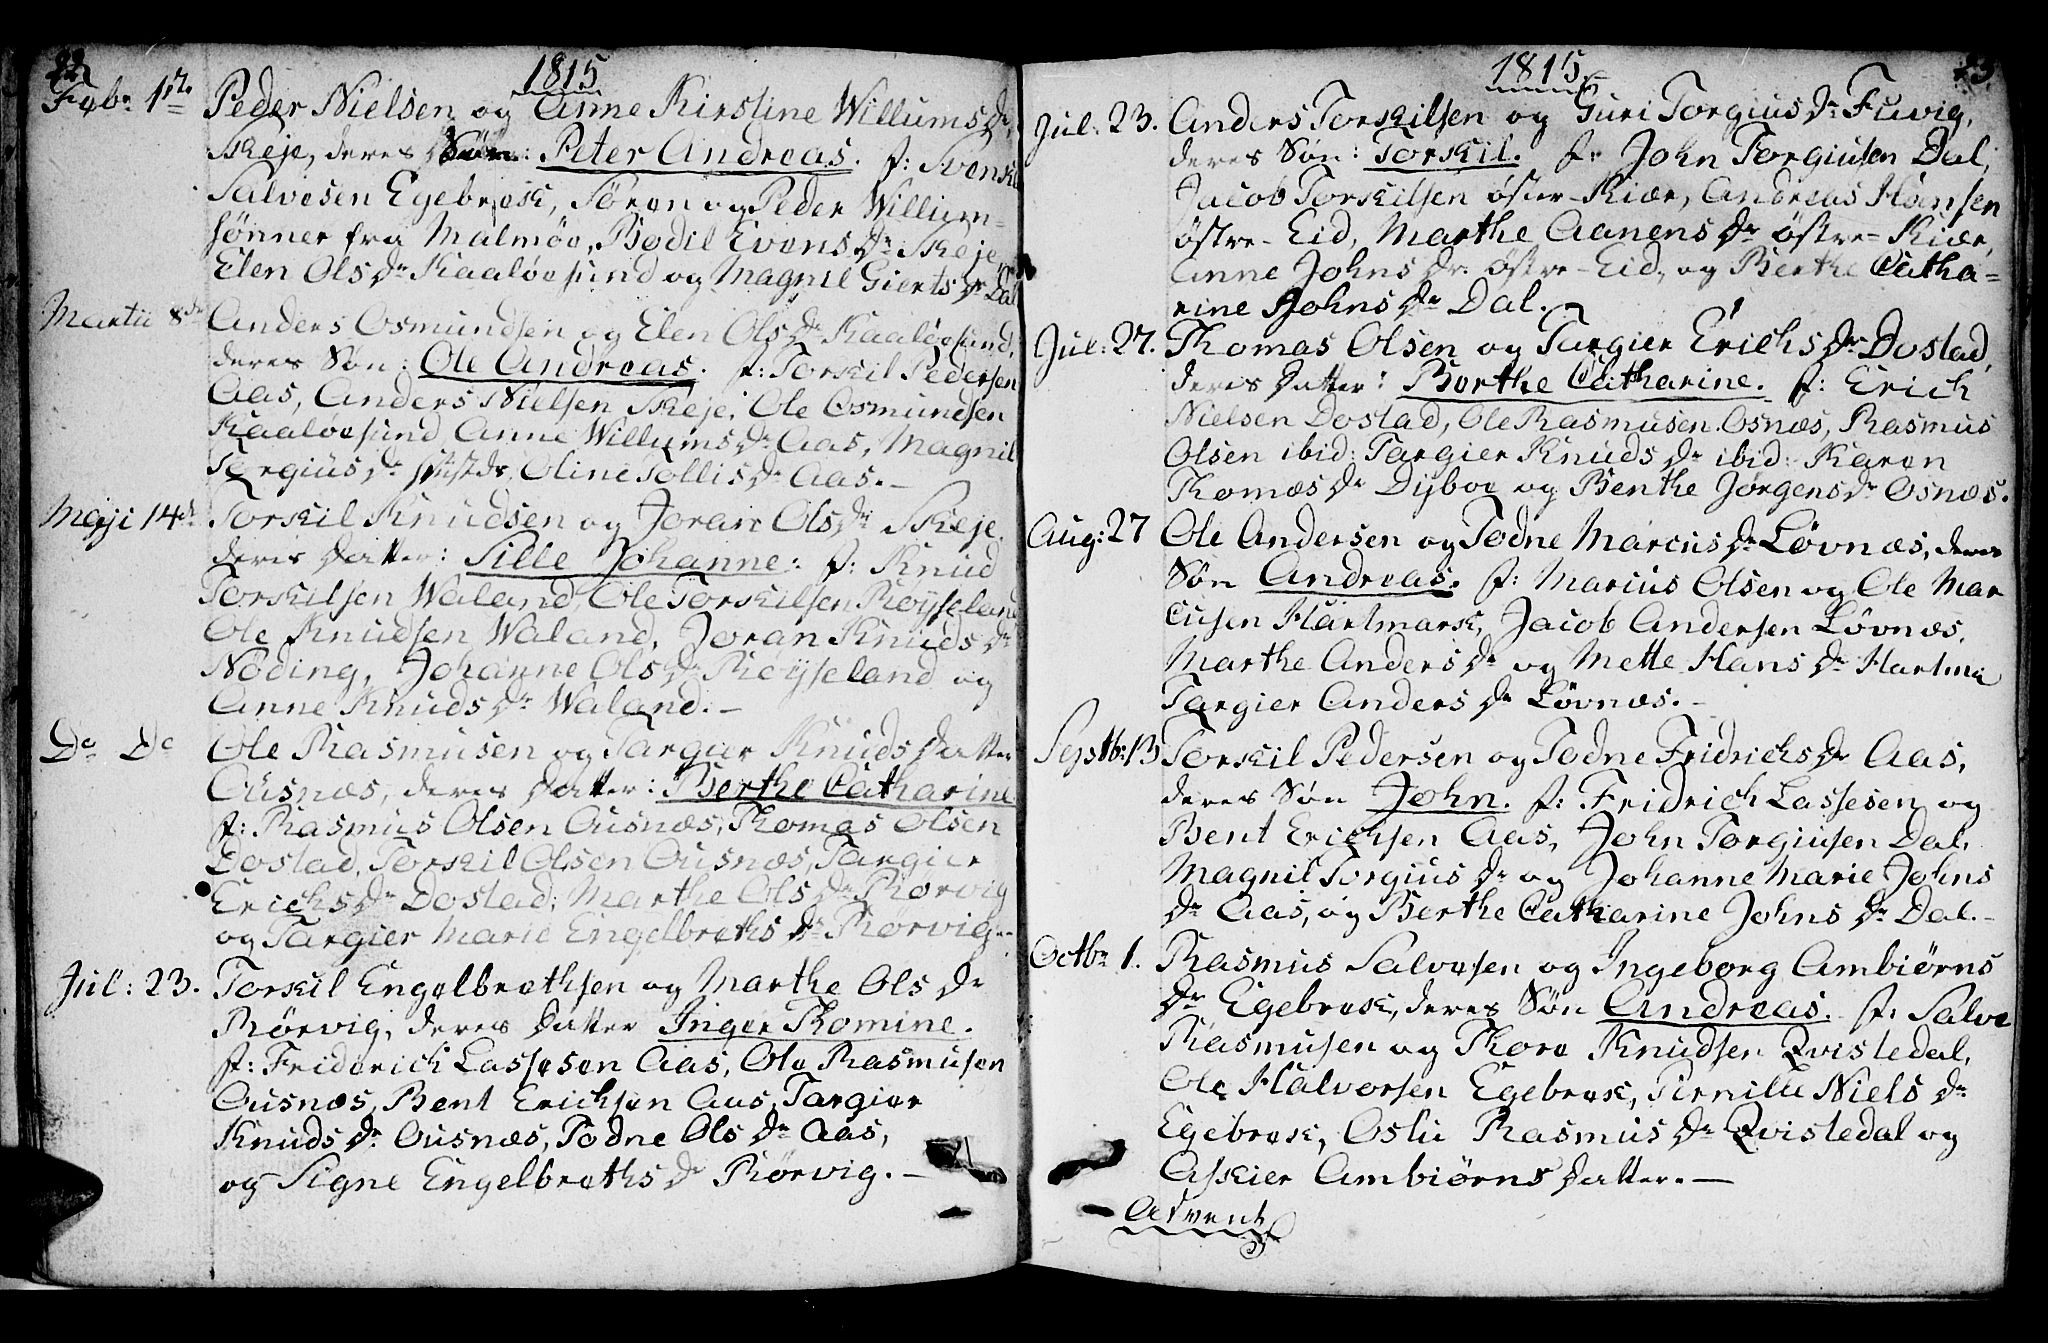 22
1815
Febr 12te Peder Nielsen og Anne Kirstine Willums Dr
Skeje, deres Søn: Peter Andreas. f: Svensk
Salvesen Egebrek, Søren og Peder Willum-
sønner fra Malmøe, Bodil Evens Dr Skeje
Elen Ols Dr Kaaløesund og Magnil Gierts Dr Dal
Martii 8de Anders Osmundsen og Elen Ols Dr Kaaløesund,
deres Søn: Ole Andreas. f: Torkil Pedersen
Aas, Anders Nielsen Skeje, Ole Osmundsen
Kaaløesund, Anne Willums Dr Aas, Magnil
Torgius Dr, Oline Tollis Dr Aas.-
Meji 14d Torkil Knudsen og Joran Ols Dr Skeje
deris Datter: Sille Johanne: f: Knud
Torkilsen Waland, Ole Torkilsen Røyseland
Ole Knudsen Waland, Joran Knuds Dr
Nøding, Johanne Ols Dr Røyseland og
Anne Knuds Dr Waland.-
Do Do Ole Rasmusen og Targier Knuds Datter
Ousnæs, deres Datter: Berthe Catharine
f: Rasmus Olsen Ousnæs, Thomas Olsen
Dostad, Torskil Olsen Ousnæs, Targier
Erichs Dr Dostad, Marthe Ols Dr Rørvig
og Targier Marie Engelbreths Dr Rørvig.-
Jul: 23. Torkil Engelbrethsen og Marthe Ols Dr
Rørvig, deres Datter Inger Thomine.
f: Friderich Lassesen Aas, Ole Rasmusen
Ousnæs, Bent Erichsen Aas, Targier
Knuds Dr Ousnæs, Todne Ols Dr Aas,
og Signe Engelbreths Dr Rørvig.-
1815
23
Jul: 23. Anders Torskilsen og Guri Torgius Dr Fuvig,
deres Søn: Torskil. f: John Torgiusen Dal,
Jacob Torskilsen øster-Kiær, Andreas Hansen
østre-Eid, Marthe Aanens Dr østre-Kiær,
Anne Johns Dr. østre-Eid, og Berthe Catha-
rine Johns Dr Dal.
Jul: 27. Thomas Olsen og Targier Erichs Dr Dostad
deres Datter: Berthe Catharine. f: Erich
Nielsen Dostad, Ole Rasmusen Osnæs, Rasmus
Olsen ibid: Targier Knuds Dr ibid: Karen
Thomæs Dr Dyboe og Benthe Jørgens Dr Osnæs.
Aug: 27 Ole Andersen og Todne Marcus Dr Løvnæs, deres
Søn Andreas. f: Marius Olsen og Ole Mar
cusen Hartmark, Jacob Andersen Løvnæs,
Marthe Anders Dr og Mette Hans Dr Hartma
Targier Anders Dr Løvnæs.-
Septb: 13 Torskil Pedersen og Todne Fridrichs Dr Aas,
deres Søn John. f: Fridrich Lassesen og
Bent Erichsen Aas, John Torgiusen Dal,
Magnil Torgius Dr og Johanne Marie Johns
Dr Aas, og Berthe Catharine Johns Dr Dal.-
Octbr 1. Rasmus Salvesen og Ingeborg Ambiørns
Dr Egebrek, deres Søn Andreas. f: Salve
Rasmusen og Thore Knudsen Qvistedal,
Ole Halvorsen Egebrek, Pernille Niels Dr
Egebrek, Oslie Rasmus Dr Qvistedal og
Askier Ambiørns Datter.-
Advent